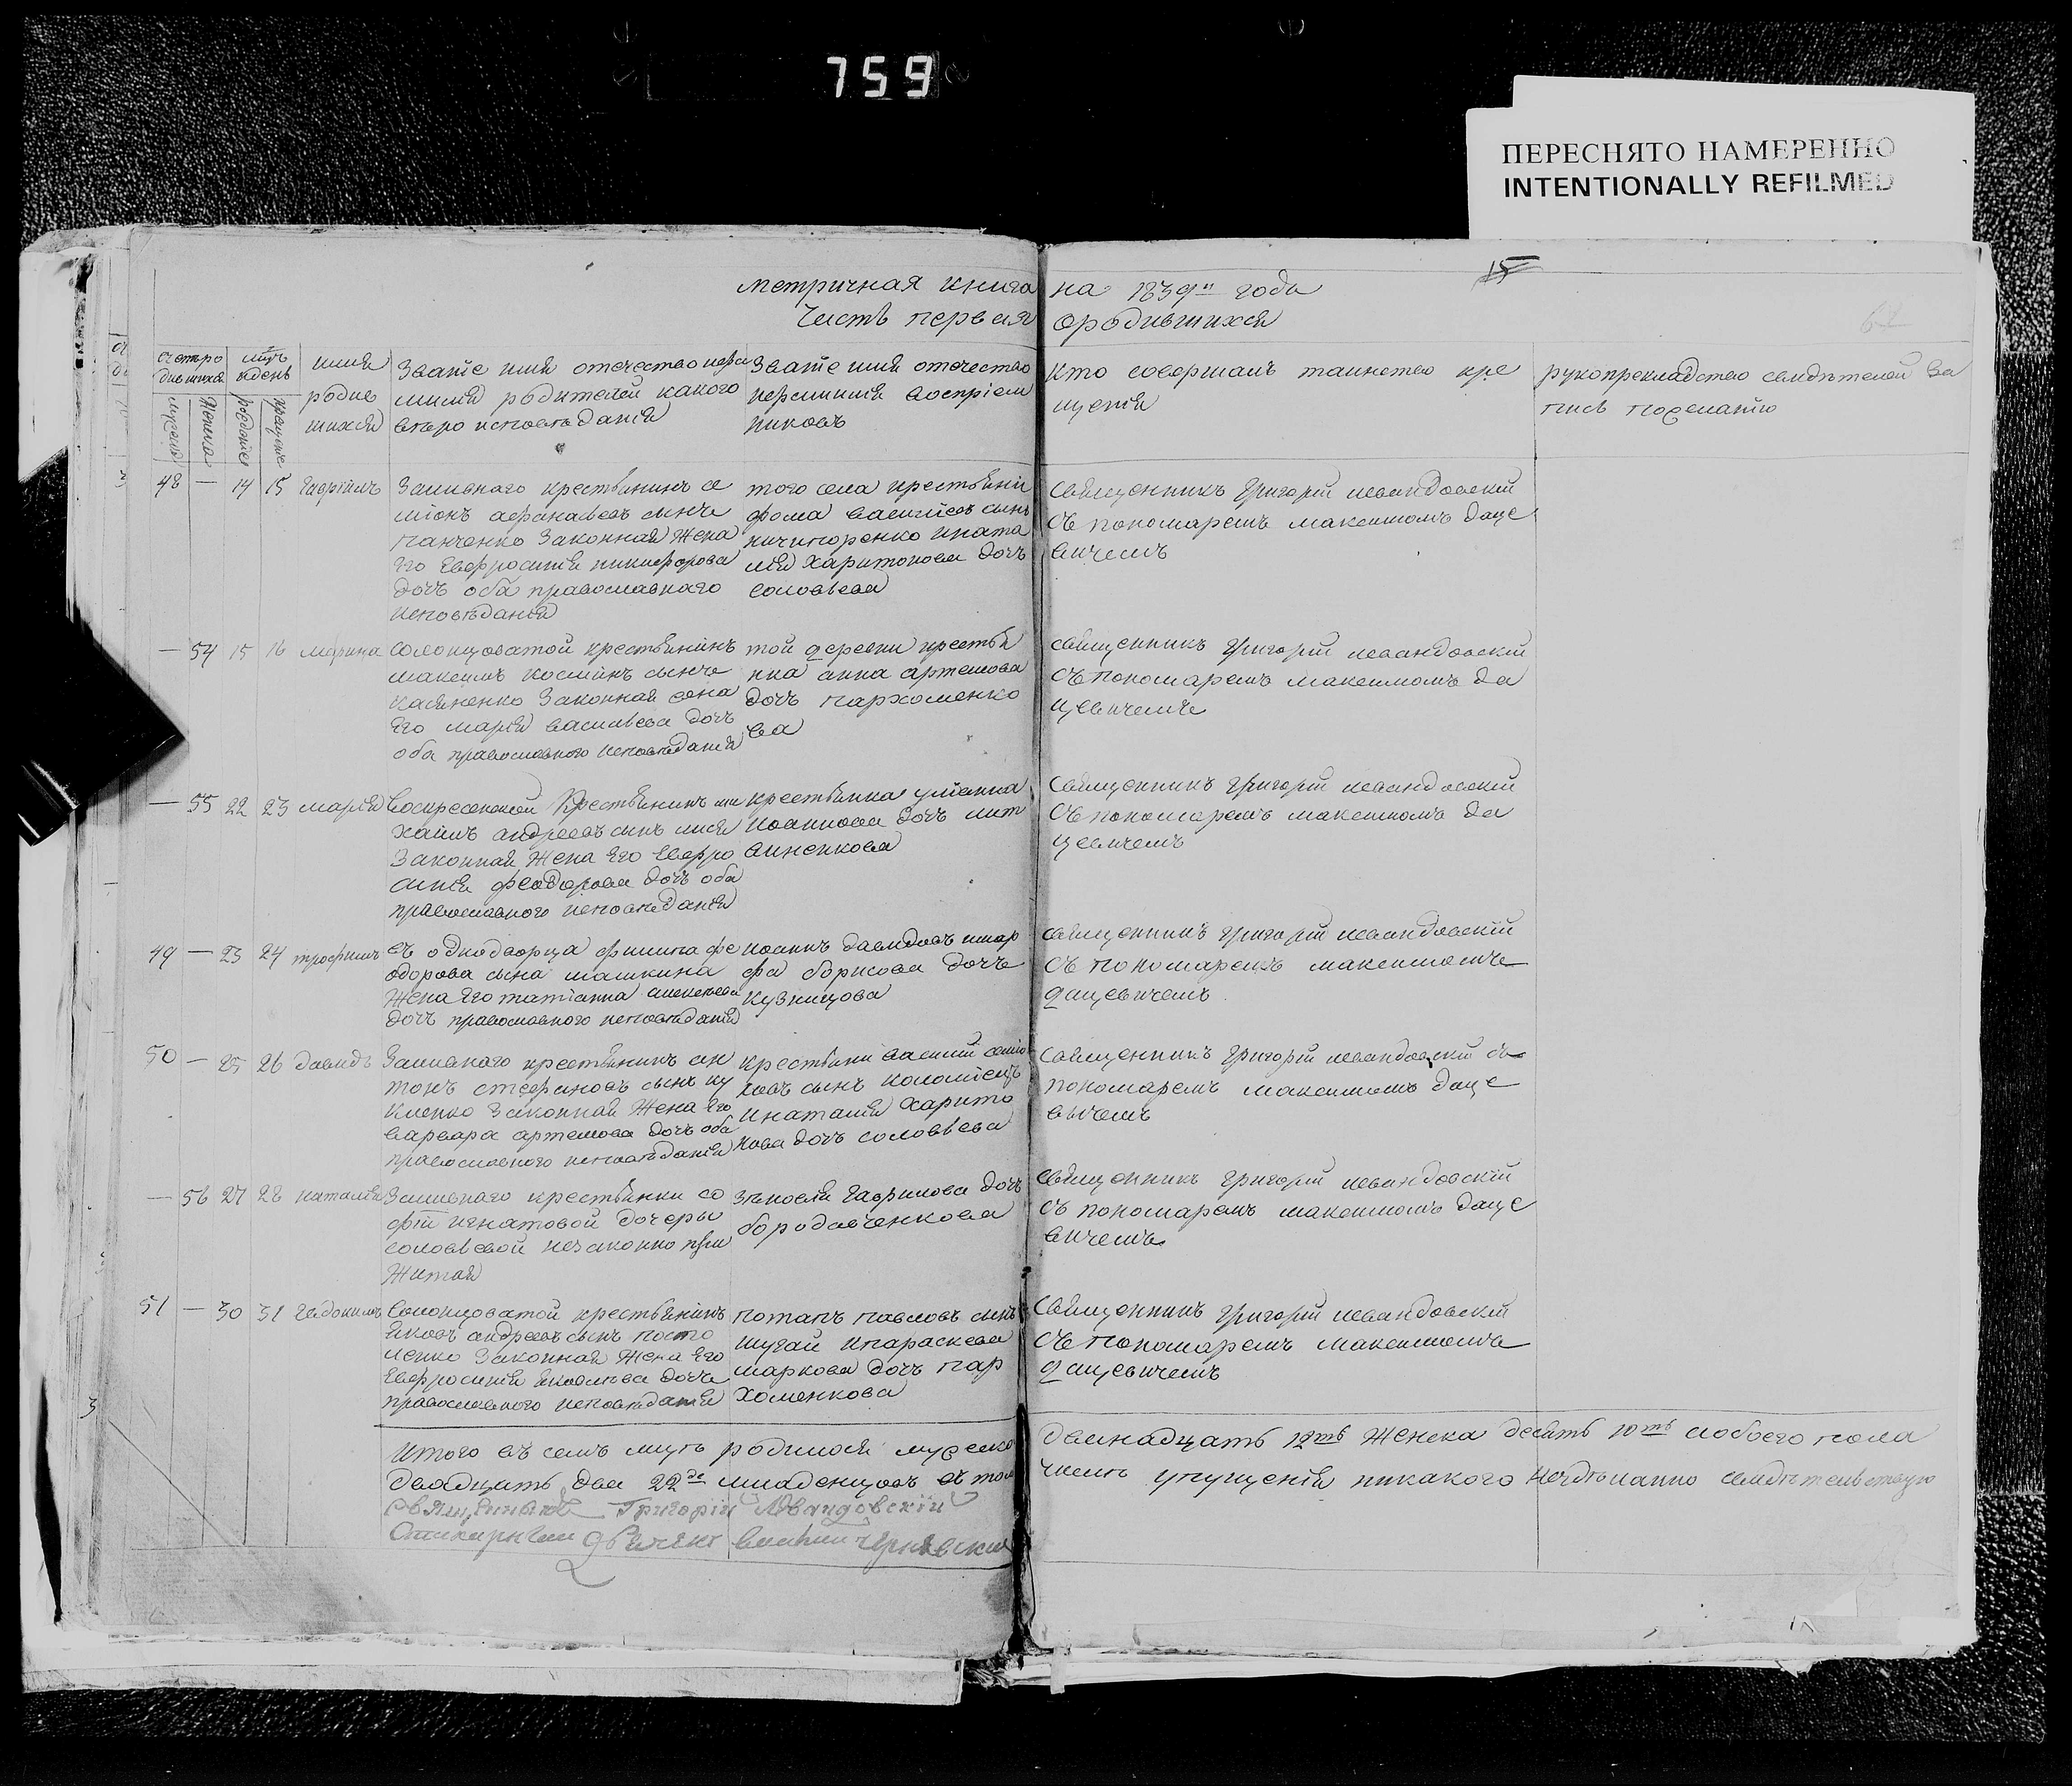 759
ПЕРЕСНЯТО НАМЕРЕННО
INTENTIONALLY REFILMED
15
метричная книга на 1839й года
Часть первая ородившихся
счетро
дившихся
мцъ
идень
мужеска
Женска
рождение
крещение
имя
родив
шихся
Званіе имя отечество ифа
милія родителей какого
вѣро исповѣданія
Званіе имя отечество
ифамилія воспріем
никовъ
Кто совершалъ таинство кре
щенія
рукоприкладство свидѣтелей за
пись пожеланію
48 — 14 15 Гавріилъ
Заливнаго крестьянинъ се
міонъ афанасьевъ сынъ
панченко Законная Жена
Его Евфросинія никифорова
дочь оба православнаго
исповѣданія
того села крестьяни
фома васильевъ сынъ
ничипоренко ината
лія Харитонова дочь
соловьева
Священникъ Григорій левандовскій
съ пономаремъ максимомъ даце
вичемъ
— 54 15 16 марина
Солонцоватой крестьянинъ
максимъ косминъ сынъ
касяненко Законная жена
Его марія васильева дочь
оба православного исповѣданія
той деревни крестья
нка анна артемова
дочь пархоменко
ва
священникъ Григорій левандовскій
съ пономаремъ максимомъ да
цевичемъ
— 55 22 23 марія
Воскресенской Крестьянинъ ми
хаилъ андреевъ сынъ лися
Законная Жена Его Евфро
синія феодорова дочь оба
православного исповѣданія
крестьянка уліанна
иоаннова дочь лит
виненкова
Священникъ Григорій левандовскій
съ пономаремъ максимомъ да
цевичемъ
49 — 23 24 трофимъ
въ однодворца филипа фе
одорова сына машкина
Жена Его татіанна алексѣева
дочь православного исповѣданія
иоаннъ давидовъ имар
фа борисова дочь
кузницова
священникъ григорій левандовскій
съ пономаремъ максимомъ
дацевичемъ
50 — 25 26 давидъ
Заливнаго крестьянинъ ан
тонъ стефановъ сынъ ку
кленко Законная Жена Его
варвара артемова дочь оба
православного исповѣданія
крестьяни василій семіо
новъ сынъ коломіецъ
инаталія Харито
нова дочь соловьева
Священникъ Григорій левандовскій съ
пономаремъ максимомъ даце
вичемъ
— 56 27 28 наталія
Заливнаго крестьянки со
фіи игнатовой дочеры
соловьевой незаконно при
житая
Зѣновія Гаврилова дочь
бородавченкова
Священникъ Григорій левандовскій
съ пономаремъ максимомъ даце
вичемъ
51 — 30 31 Евдокимъ
Солонцоватой крестьянинъ
яковъ андреевъ сынъ посто
ленко Законная Жена Его
Евфросинія яковлева дочь
православного исповѣданія
потапъ павловъ сынъ
шугай ипараскева
маркова дочь пар
хоменкова
Священникъ Григорій левандовскій
съ пономаремъ максимомъ
дацевичемъ
Итого въ семъ мцѣ родилося мужска двенадцать 12ть Женска десять 10ть иобоего пола
двадцать два 22де младенцовъ въ томъ числѣ упущенія никакого неучинанно свидѣтельствую
Священникъ Григорій Левандовскій